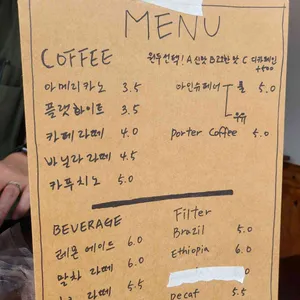 MENU
COFFEE
원두선택! A 산뜻 B 고소한 맛 C 디카페인
+500
아메리카노 3.5
플랫화이트 3.5
카페라떼 4.0
바닐라라떼 4.5
카푸치노 5.0
아인슈페너 5.0
우유
Porter Coffee 5.0
BEVERAGE
레몬에이드 6.0
말차 라떼 6.0
라떼 5.5
Filter
Brazil 5.0
Ethiopia 6.0
Decaf 5.5